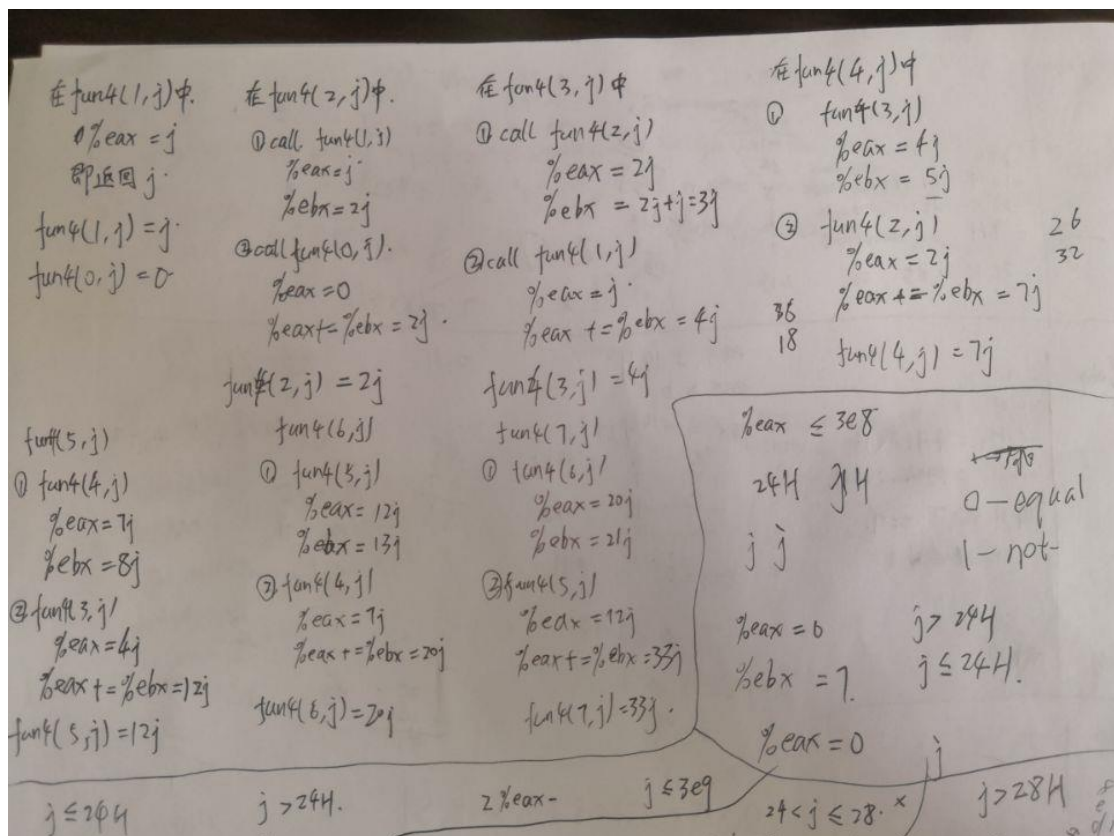 在fun4(1,j)中.
%eax=j
即返回j.
fun4(1,j)=j.
fun4(0,j)=0
在fun4(2,j)中.
① call fun4(1,j)
%eax=j
%ebx=2j
② call fun4(0,j).
%eax=0
%eax+=%ebx=2j.
fun4(2,j)=2j
在fun4(3,j)中
① call fun4(2,j)
%eax=2j
%ebx=2j+j=3j
② call fun4(1,j)
%eax=j.
%eax+=%ebx=4j
fun4(3,j)=4j
在fun4(4,j)中
① fun4(3,j)
%eax=4j
%ebx=5j
② fun4(2,j)
%eax=2j
%eax+=%ebx=7j
fun4(4,j)=7j
26
32
36
18
fun4(5,j)
① fun4(4,j)
%eax=7j
%ebx=8j
② fun4(3,j)
%eax=4j
%eax+=%ebx=12j
fun4(5,j)=12j
fun4(6,j)
① fun4(5,j)
%eax=12j
%ebx=13j
② fun4(4,j)
%eax=7j
%eax+=%ebx=20j
fun4(6,j)=20j
fun4(7,j)
① fun4(6,j)
%eax=20j
%ebx=21j
② fun4(5,j)
%eax=12j
%eax+=%ebx=33j
fun4(7,j)=33j.
%eax ≤ 3e8
24H
0-equal
j j
1-not-
%eax=0 j>24H
%ebx=7. j≤24H.
%eax=0 j
j≤24H j>24H. 2%eax- j≤3e9 24<j≤28. × j>28H